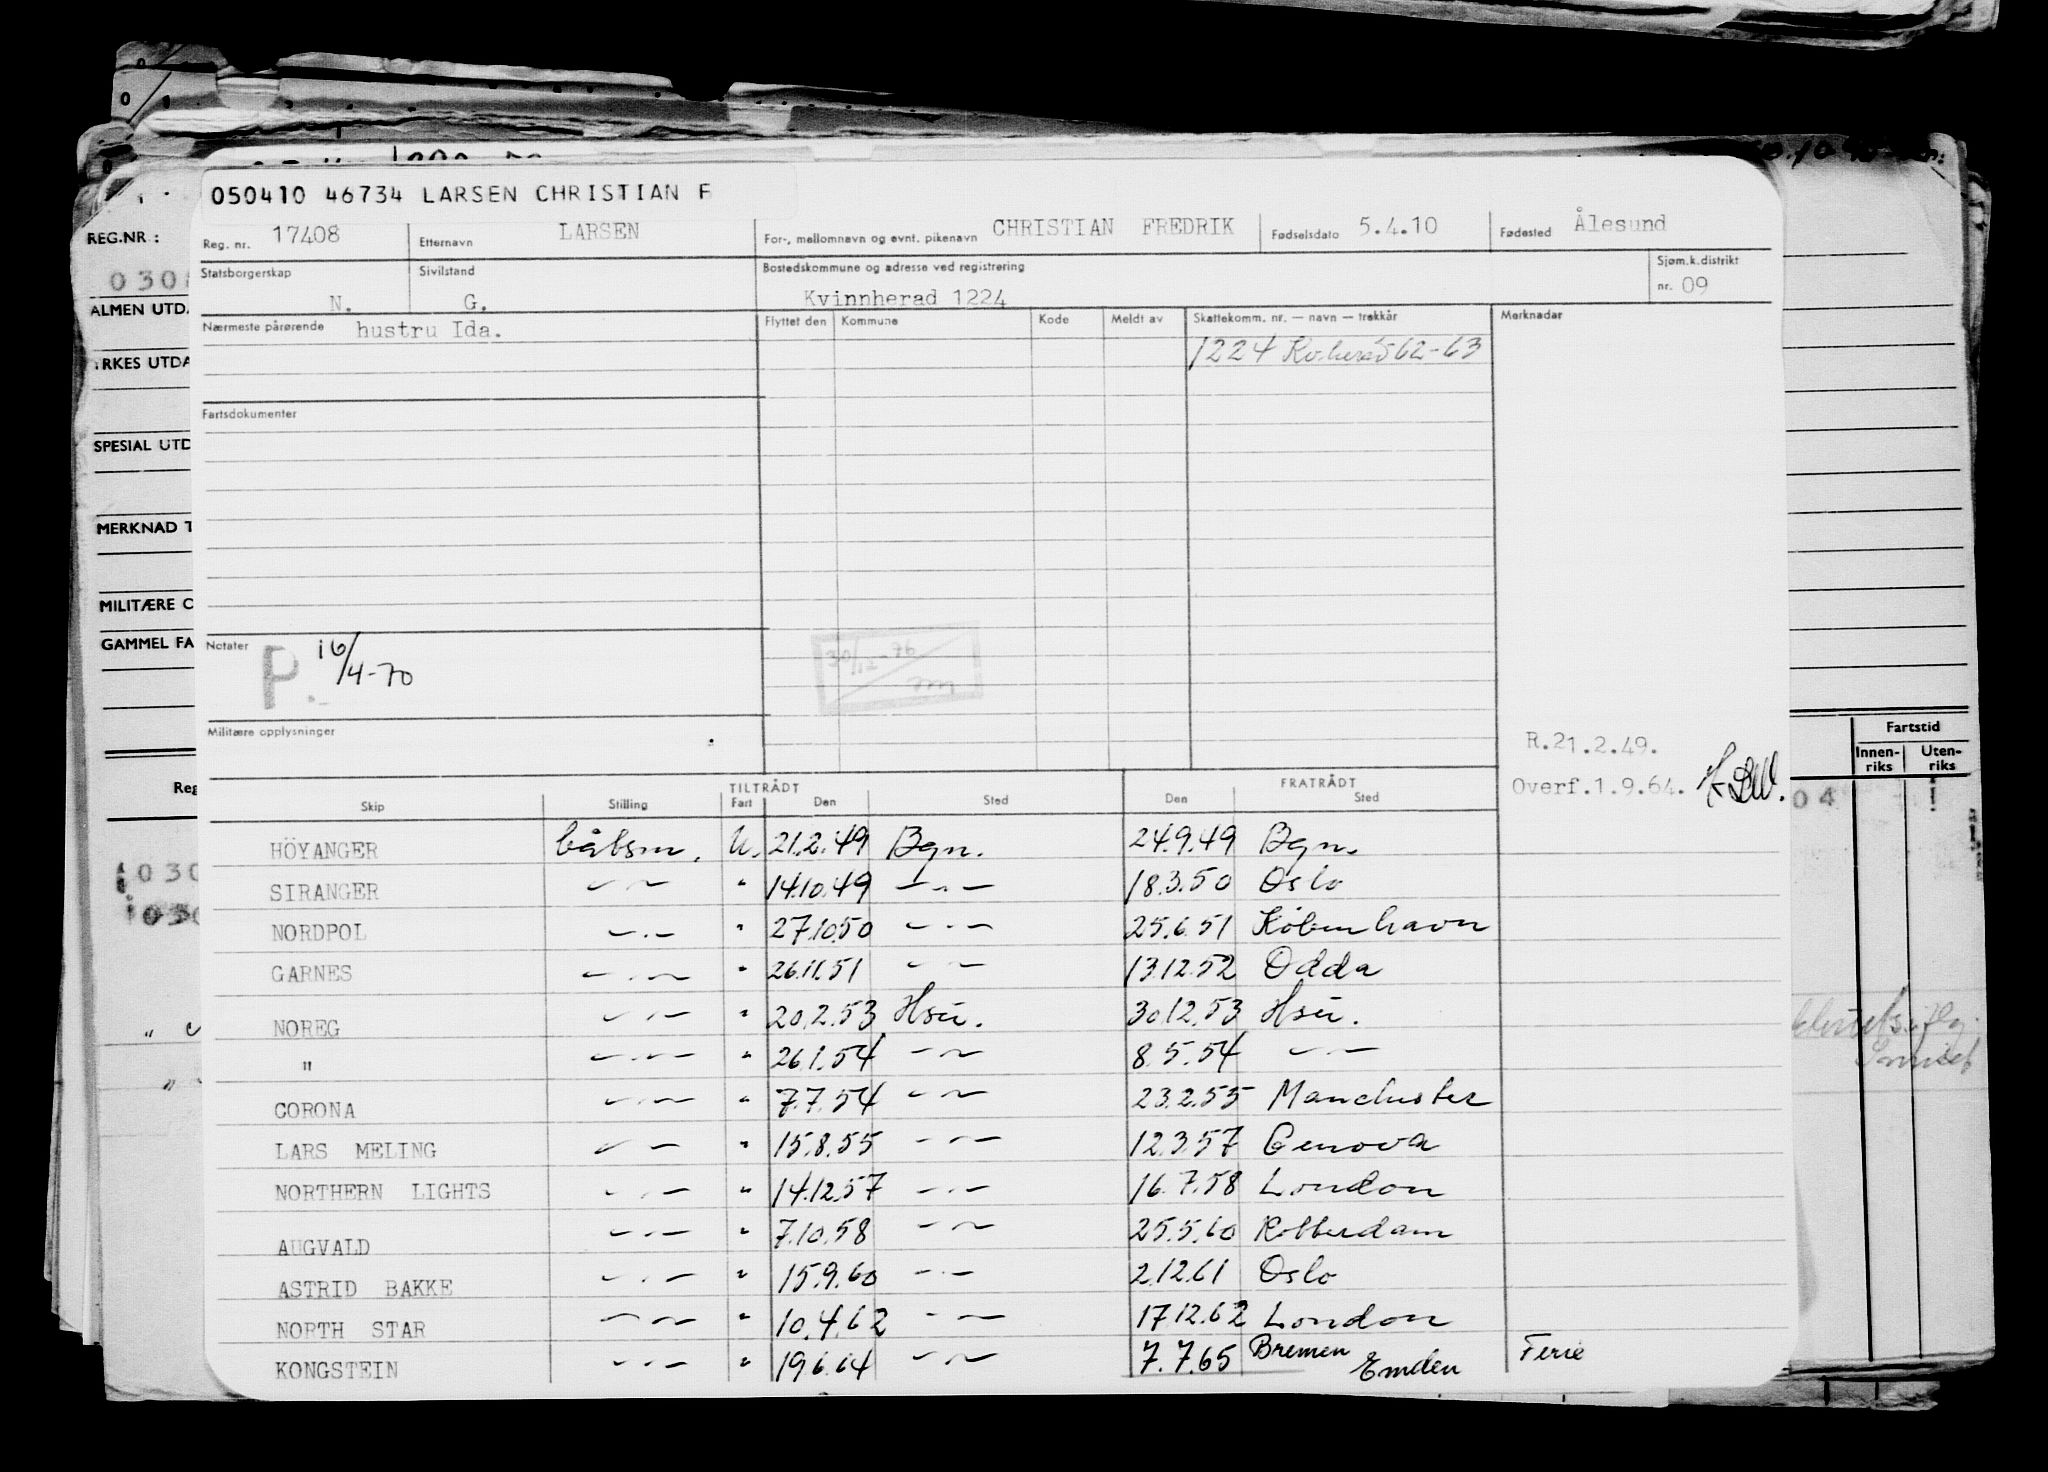 050410 46734 LARSEN CHRISTIAN F
REG.NR.:
Reg. nr. 17408 Etternavn LARSEN For-, mellomnavn og evnt. pikenavn CHRISTIAN FREDRIK Fødselsdato 5.4.10 Fødested Ålesund
Statsborgerskap N. Sivilstand G. Bostedskommune og adresse ved registrering Kvinnherad 1224 Sjøm.k.distrikt nr. 09
ALMEN UTD
Nærmeste pårørende hustru Ida. Flyttet den Kommune Kode Meldt av Skattekomm. nr. — navn — trekkår Merknader
1224 62-63
RKES UTDA
Fartsdokumenter
SPESIAL UTD
MERKNAD T
MILITÆRE O
GAMMEL FA
Notater P. 16/4-70
30/12-76
Militære opplysninger
R.21.2.49.
Overf.1.9.64.
Fartstid
Innen-riks Uten-riks
Reg
04
TILTRÅDT FRATRÅDT
Skip Stilling Fart Den Sted Den Sted
HÖYANGER båtsm. U. 21.2.49 Bgn. 24.9.49 Bgn.
SIRANGER — " — " 14.10.49 — " — 18.3.50 Oslo
NORDPOL — " — " 27.10.50 — " — 25.6.51 København
GARNES — " — " 26.11.51 — " — 13.12.52 Odda
NOREG — " — " 20.2.53 Hsu. 30.12.53 Hsu.
" — " — " 26.1.54 — " — 8.5.54 — " —
CORONA — " — " 7.7.54 — " — 23.2.55 Manchester
LARS MELING — " — " 15.8.55 — " — 12.3.57 Genova
NORTHERN LIGHTS — " — " 14.12.57 — " — 16.7.58 London
AUGVALD — " — " 7.10.58 — " — 25.5.60 Rotterdam
ASTRID BAKKE — " — " 15.9.60 — " — 2.12.61 Oslo
NORTH STAR — " — " 10.4.62 — " — 17.12.62 London
KONGSTEIN — " — " 19.6.64 — " — 7.7.65 Bremen Emden Ferie